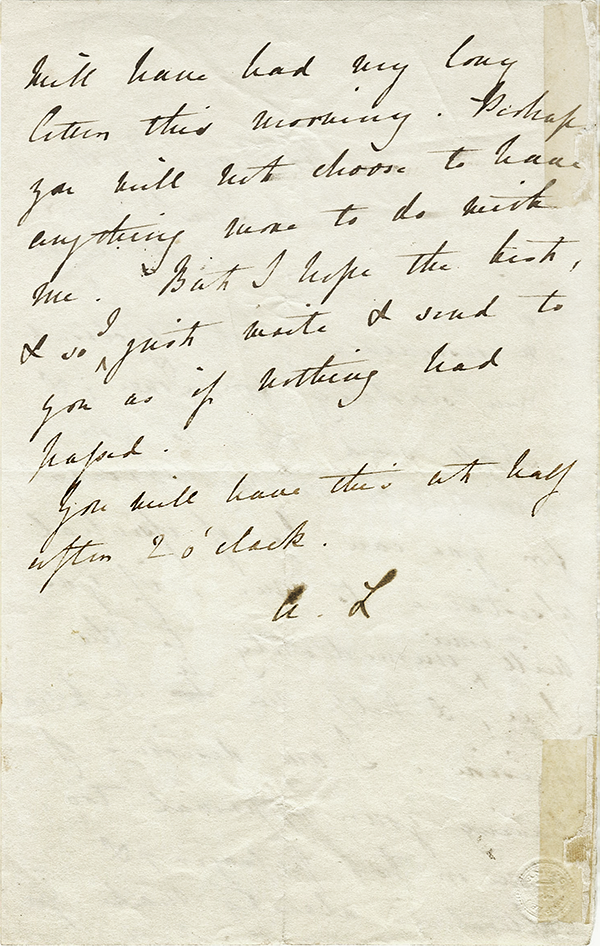 will have had my long
letter this morning. Perhaps
you will not choose to have
anything more to do with
me. But I hope the best,
& so I just write & send to
you as if nothing had
passed.
You will have this at half
after 2 o'clock.
A. L